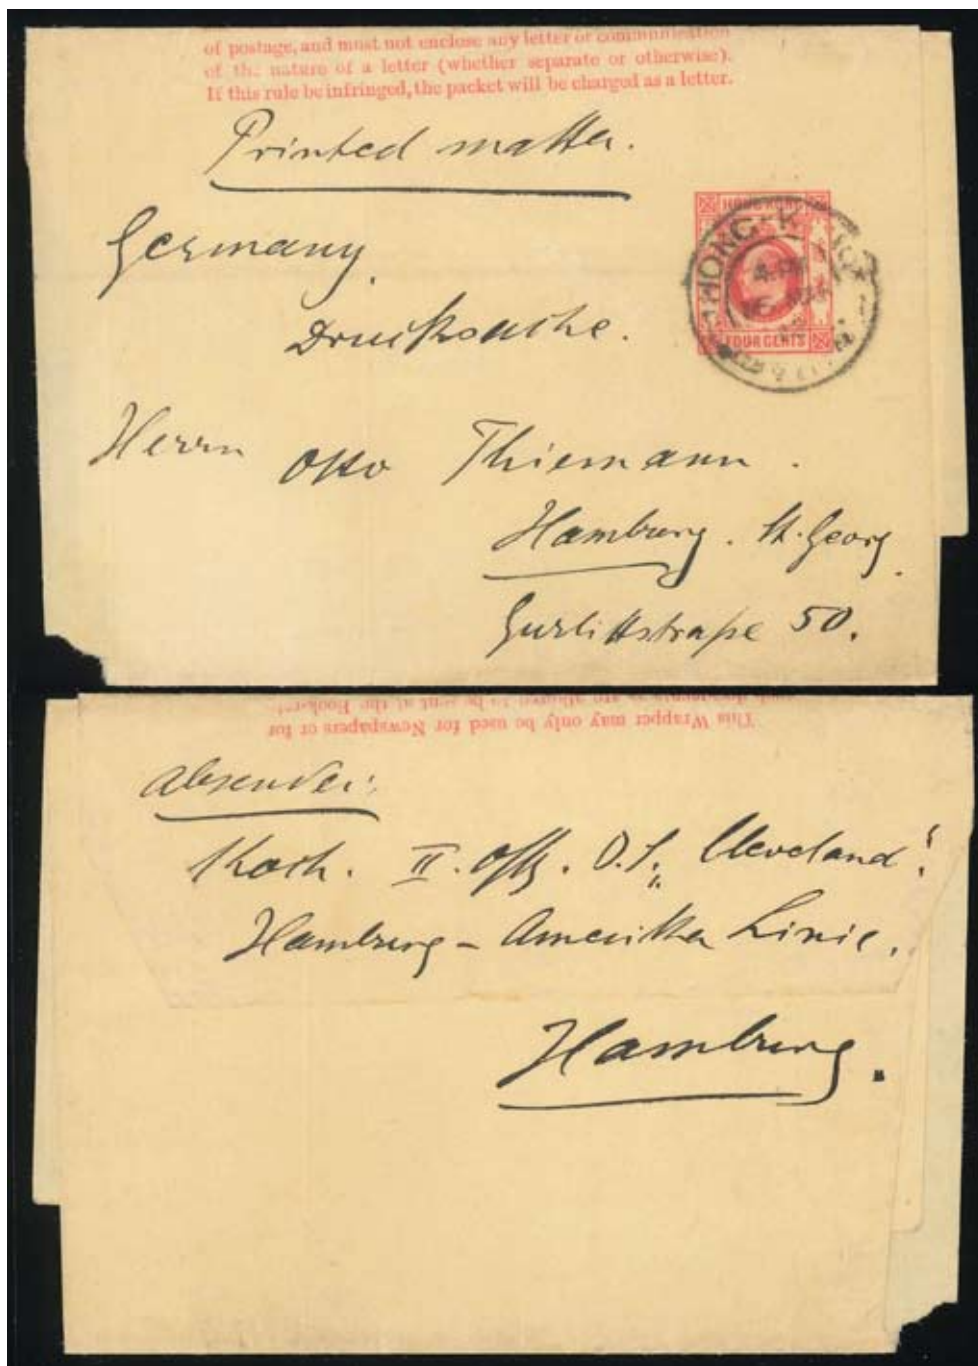 of postage, and must not enclose any letter or communication
of the nature of a letter (whether separate or otherwise).
If this rule be infringed, the packet will be charged as a letter.
Printed matter.
HONG KONG
Germany.
FOUR CENTS
Drucksache.
Herrn Otto Thiemann.
Hamburg. St. Georg.
Gurlittstraße 50.
This Wrapper may only be used for Newspapers or for
such documents as are allowed to be sent at the Book-rate
Absender:
Koch. II. Offz. D.S. „Cleveland“.
Hamburg – Amerika Linie.
Hamburg.